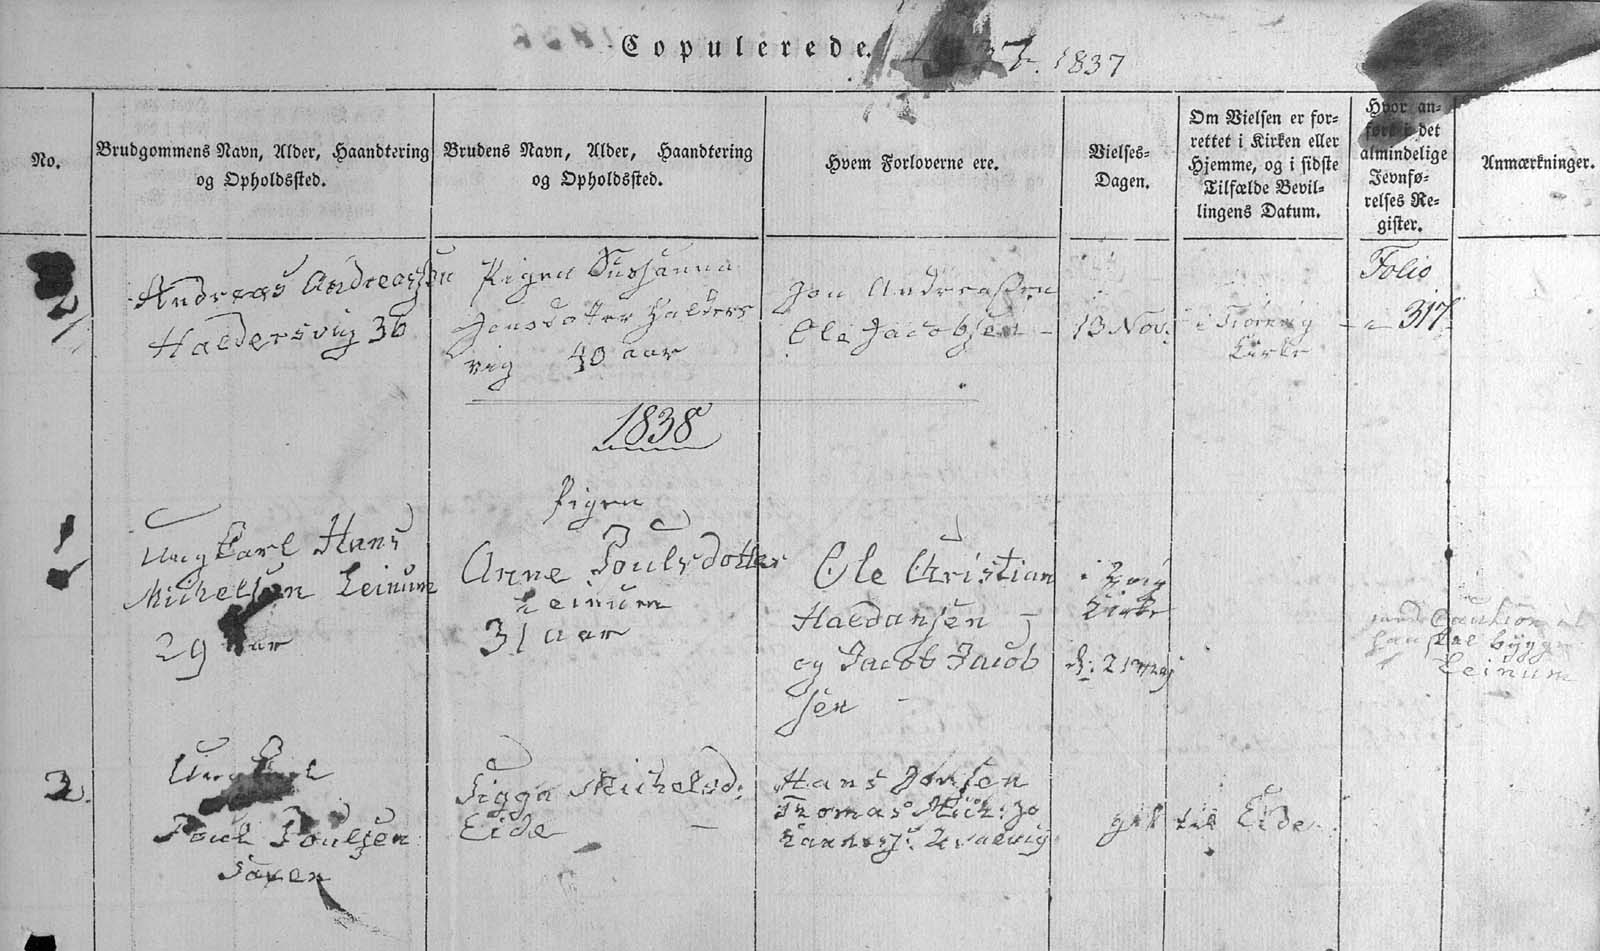 Copulerede. 37. 1837
No.
Brudgommens Navn, Alder, Haandtering
og Opholdssted.
Brudens Navn, Alder, Haandtering
og Opholdssted.
Hvem Forloverne ere.
Vielses-
Dagen.
Om Vielsen er for-
rettet i Kirken eller
Hjemme, og i sidste
Tilfælde Bevil-
lingens Datum.
Hvor an-
ført i det
almindelige
Jevnfø-
relses Re-
gister.
Anmærkninger.
2
Andreas Andreassen
Haldersvig 36
Pigen Sushanna
Jonsdotter Halders
vig 40 aar
Jon Andreassen
Ole Jacobsen
13 Nov.
i
Kirke
Folio
317
1838
1
Ungkarl Hans
Michelsen Leinum
29 aar
Pigen
Anne Poulsdotter
Leinum
31 aar
Ole Christian
Haldansen
og Jacob Jacob
sen
i
Kirke
d: 21 Maj
bÿgd
Leinum
2.
Ungkarl
Poul Poulsen
Sigga Michelsd:
Eide
Hans Jonsen
Thomas Mich: Jo
til Eide